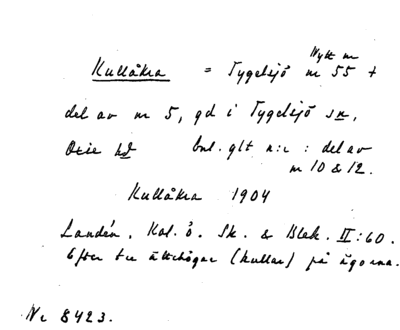 Nytt nr
Kullåkra = Tygelsjö nr 55 +
del av nr 5, gd i Tygelsjö sn,
Oxie hd bnl. glt n:r : del av
nr 10 & 12.
Kullåkra 1904
Landén. Kat. ö. Sk. & Blek. II:60.
Efter tre ättehögar (kullar) på ägorna.
Nr 8423.